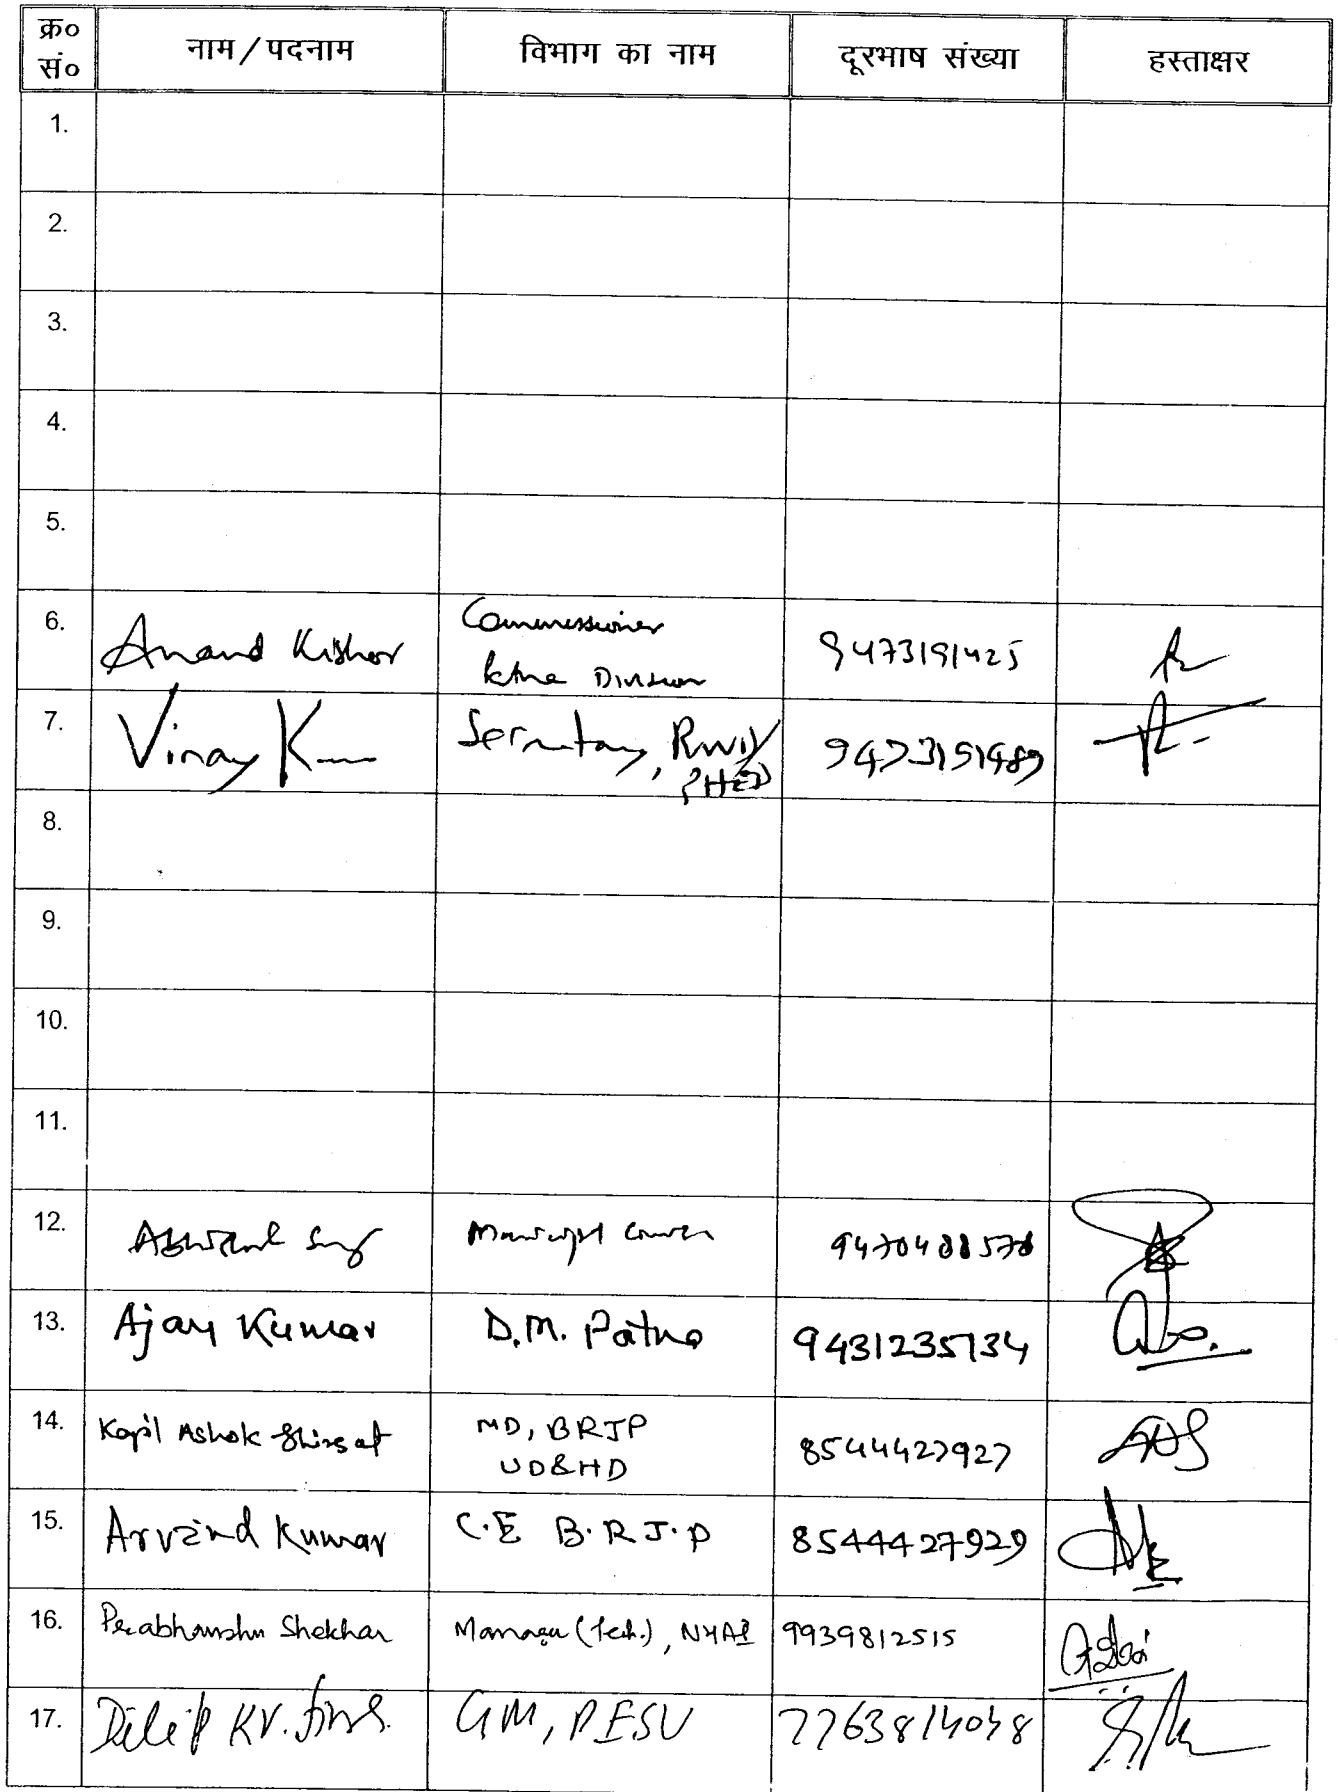 क्र० सं० नाम/पदनाम विभाग का नाम दूरभाष संख्या हस्ताक्षर
1.
2.
3.
4.
5.
6. Anand Kishor Commissioner 9473191425
Patna Division
7. Vinay K Secretary, RWD/ 9473191489
PHED
8.
9.
10.
11.
12.
13. Ajay Kumar D.M. Patna 9431235134
14. Kapil Ashok Shirsat MD, BRJP 8544427927
UD&HD
15. Arvind Kumar C.E B.R.J.P 8544427929
16. Prabhanshu Shekhar Manager (Tech.), NHAI 9939812515
17. Dilip Kr. GM, PESU 7763814048